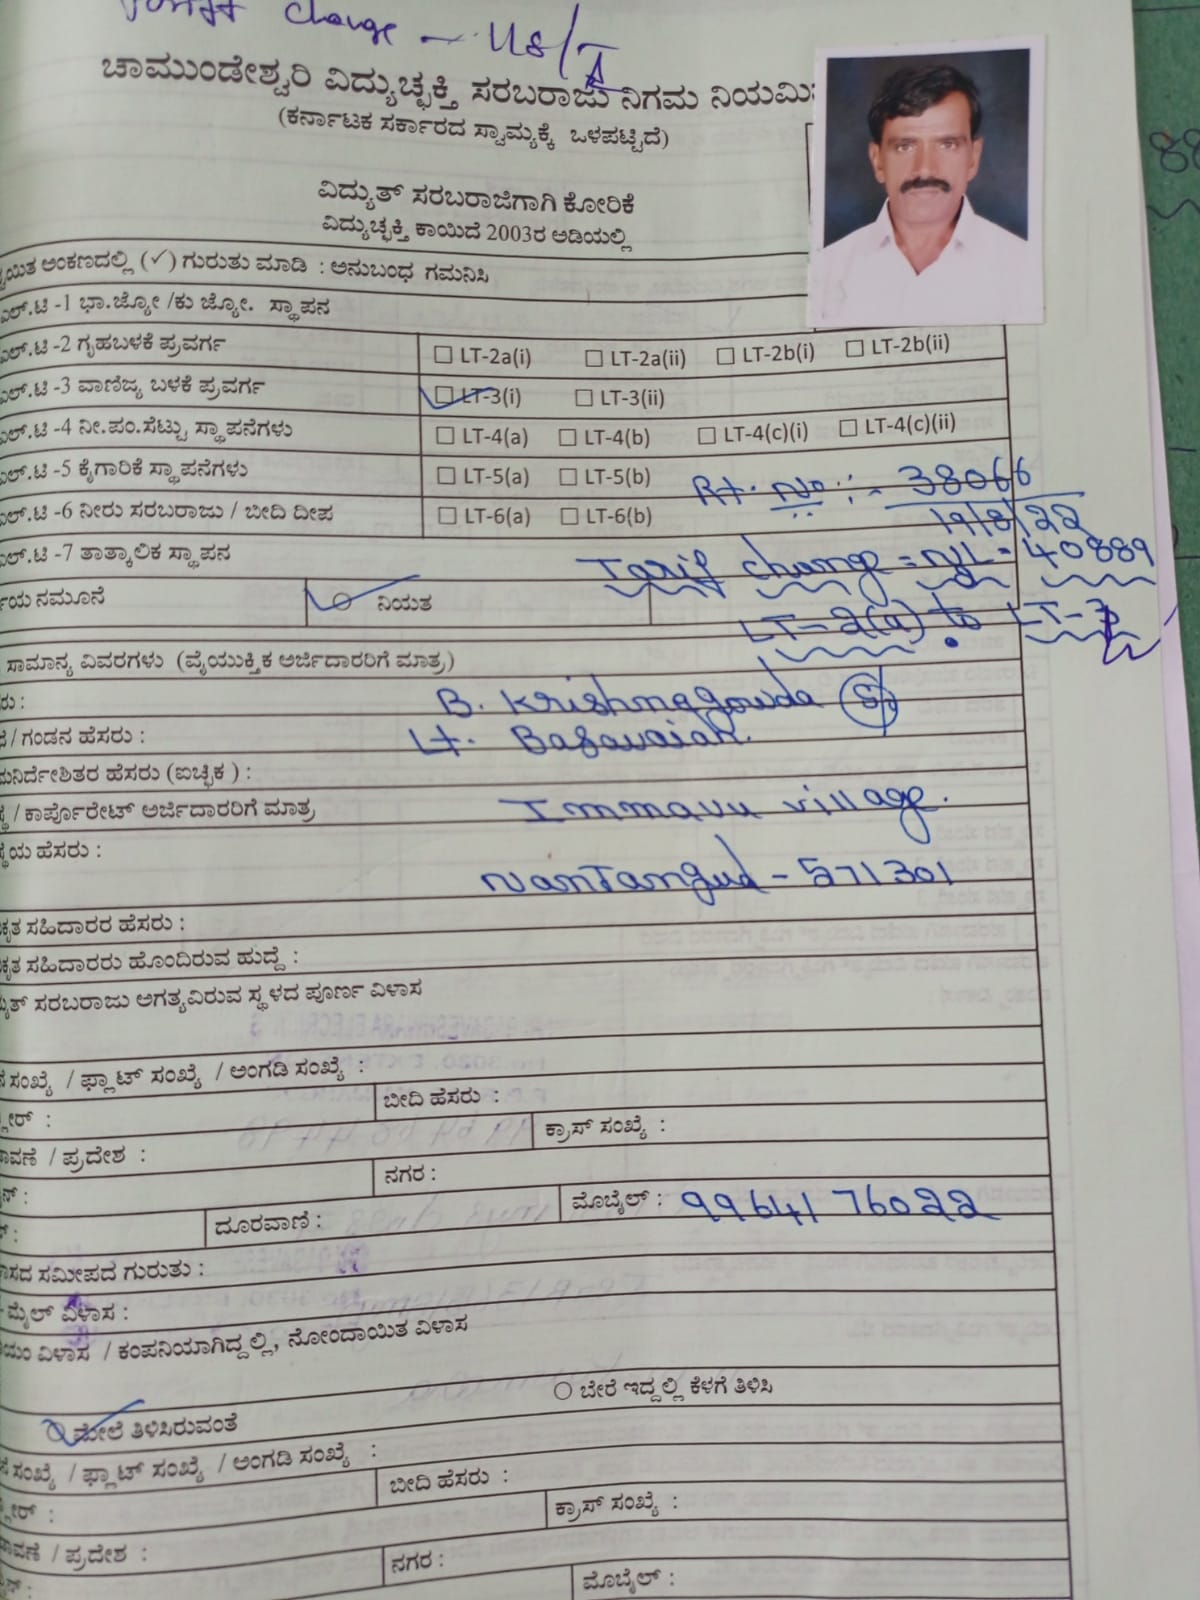 Change - U8/I
ಚಾಮುಂಡೇಶ್ವರಿ ವಿದ್ಯುಚ್ಛಕ್ತಿ ಸರಬರಾಜು ನಿಗಮ ನಿಯಮಿ
(ಕರ್ನಾಟಕ ಸರ್ಕಾರದ ಸ್ವಾಮ್ಯಕ್ಕೆ ಒಳಪಟ್ಟಿದೆ)
ವಿದ್ಯುತ್ ಸರಬರಾಜಿಗಾಗಿ ಕೋರಿಕೆ
ವಿದ್ಯುಚ್ಛಕ್ತಿ ಕಾಯಿದೆ 2003ರ ಅಡಿಯಲ್ಲಿ
ಅಂಕಣದಲ್ಲಿ (✓) ಗುರುತು ಮಾಡಿ : ಅನುಬಂಧ ಗಮನಿಸಿ
ಎಲ್.ಟಿ -1 ಭಾ.ಜ್ಯೋ /ಕು ಜ್ಯೋ. ಸ್ಥಾಪನ
ಎಲ್.ಟಿ -2 ಗೃಹಬಳಕೆ ಪ್ರವರ್ಗ ☐ LT-2a(i) ☐ LT-2a(ii) ☐ LT-2b(i) ☐ LT-2b(ii)
ಎಲ್.ಟಿ -3 ವಾಣಿಜ್ಯ ಬಳಕೆ ಪ್ರವರ್ಗ ☐ LT-3(i) ☐ LT-3(ii)
ಎಲ್.ಟಿ -4 ನೀ.ಪಂ.ಸೆಟ್ಟು ಸ್ಥಾಪನೆಗಳು ☐ LT-4(a) ☐ LT-4(b) ☐ LT-4(c)(i) ☐ LT-4(c)(ii)
ಎಲ್.ಟಿ -5 ಕೈಗಾರಿಕೆ ಸ್ಥಾಪನೆಗಳು ☐ LT-5(a) ☐ LT-5(b)
Rt. No :- 38066
ಎಲ್.ಟಿ -6 ನೀರು ಸರಬರಾಜು / ಬೀದಿ ದೀಪ ☐ LT-6(a) ☐ LT-6(b)
19/8/22
ಎಲ್.ಟಿ -7 ತಾತ್ಕಾಲಿಕ ಸ್ಥಾಪನ
Tarif change = NJL- 40889
ನಮೂನೆ ನಿಯತ
LT-2(a) to LT-3
ಸಾಮಾನ್ಯ ವಿವರಗಳು (ವೈಯುಕ್ತಿಕ ಅರ್ಜಿದಾರರಿಗೆ ಮಾತ್ರ)
B. Krishnagowda S/o
/ ಗಂಡನ ಹೆಸರು : Lt. Basavaiah.
ಹೆಸರು (ಐಚ್ಛಿಕ) :
/ ಕಾರ್ಪೊರೇಟ್ ಅರ್ಜಿದಾರರಿಗೆ ಮಾತ್ರ Immavu village.
ಹೆಸರು :
NanJangud - 571301
ಸಹಿದಾರರ ಹೆಸರು :
ಸಹಿದಾರರು ಹೊಂದಿರುವ ಹುದ್ದೆ :
ಸರಬರಾಜು ಅಗತ್ಯವಿರುವ ಸ್ಥಳದ ಪೂರ್ಣ ವಿಳಾಸ
ಸಂಖ್ಯೆ / ಫ್ಲಾಟ್ ಸಂಖ್ಯೆ / ಅಂಗಡಿ ಸಂಖ್ಯೆ :
ಬೀದಿ ಹೆಸರು :
ಕ್ರಾಸ್ ಸಂಖ್ಯೆ :
/ ಪ್ರದೇಶ :
ನಗರ :
ದೂರವಾಣಿ : ಮೊಬೈಲ್ : 99641 76022
ಸಮೀಪದ ಗುರುತು :
ಮೈಲ್ ವಿಳಾಸ :
ವಿಳಾಸ / ಕಂಪನಿಯಾಗಿದ್ದಲ್ಲಿ, ನೋಂದಾಯಿತ ವಿಳಾಸ
ಮೇಲೆ ತಿಳಿಸಿರುವಂತೆ ○ ಬೇರೆ ಇದ್ದಲ್ಲಿ ಕೆಳಗೆ ತಿಳಿಸಿ
ಸಂಖ್ಯೆ / ಫ್ಲಾಟ್ ಸಂಖ್ಯೆ / ಅಂಗಡಿ ಸಂಖ್ಯೆ :
ಬೀದಿ ಹೆಸರು :
ಕ್ರಾಸ್ ಸಂಖ್ಯೆ :
/ ಪ್ರದೇಶ :
ನಗರ :
ಮೊಬೈಲ್ :